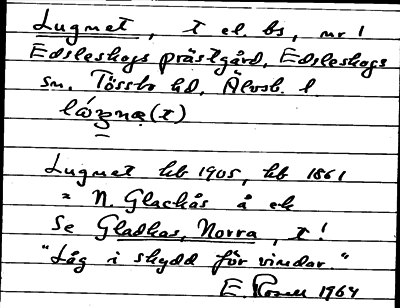 Lugnet, t el. bs, nr 1
Edsleskogs prästgård, Edsleskogs
sn. Tössbo hd, Älvsb. l
Lugnet hb 1905, hb 1861
= N. Glackås å ek
Se Gladkas, Norra, t!
"Låg i skydd för vindar."
E. 1964